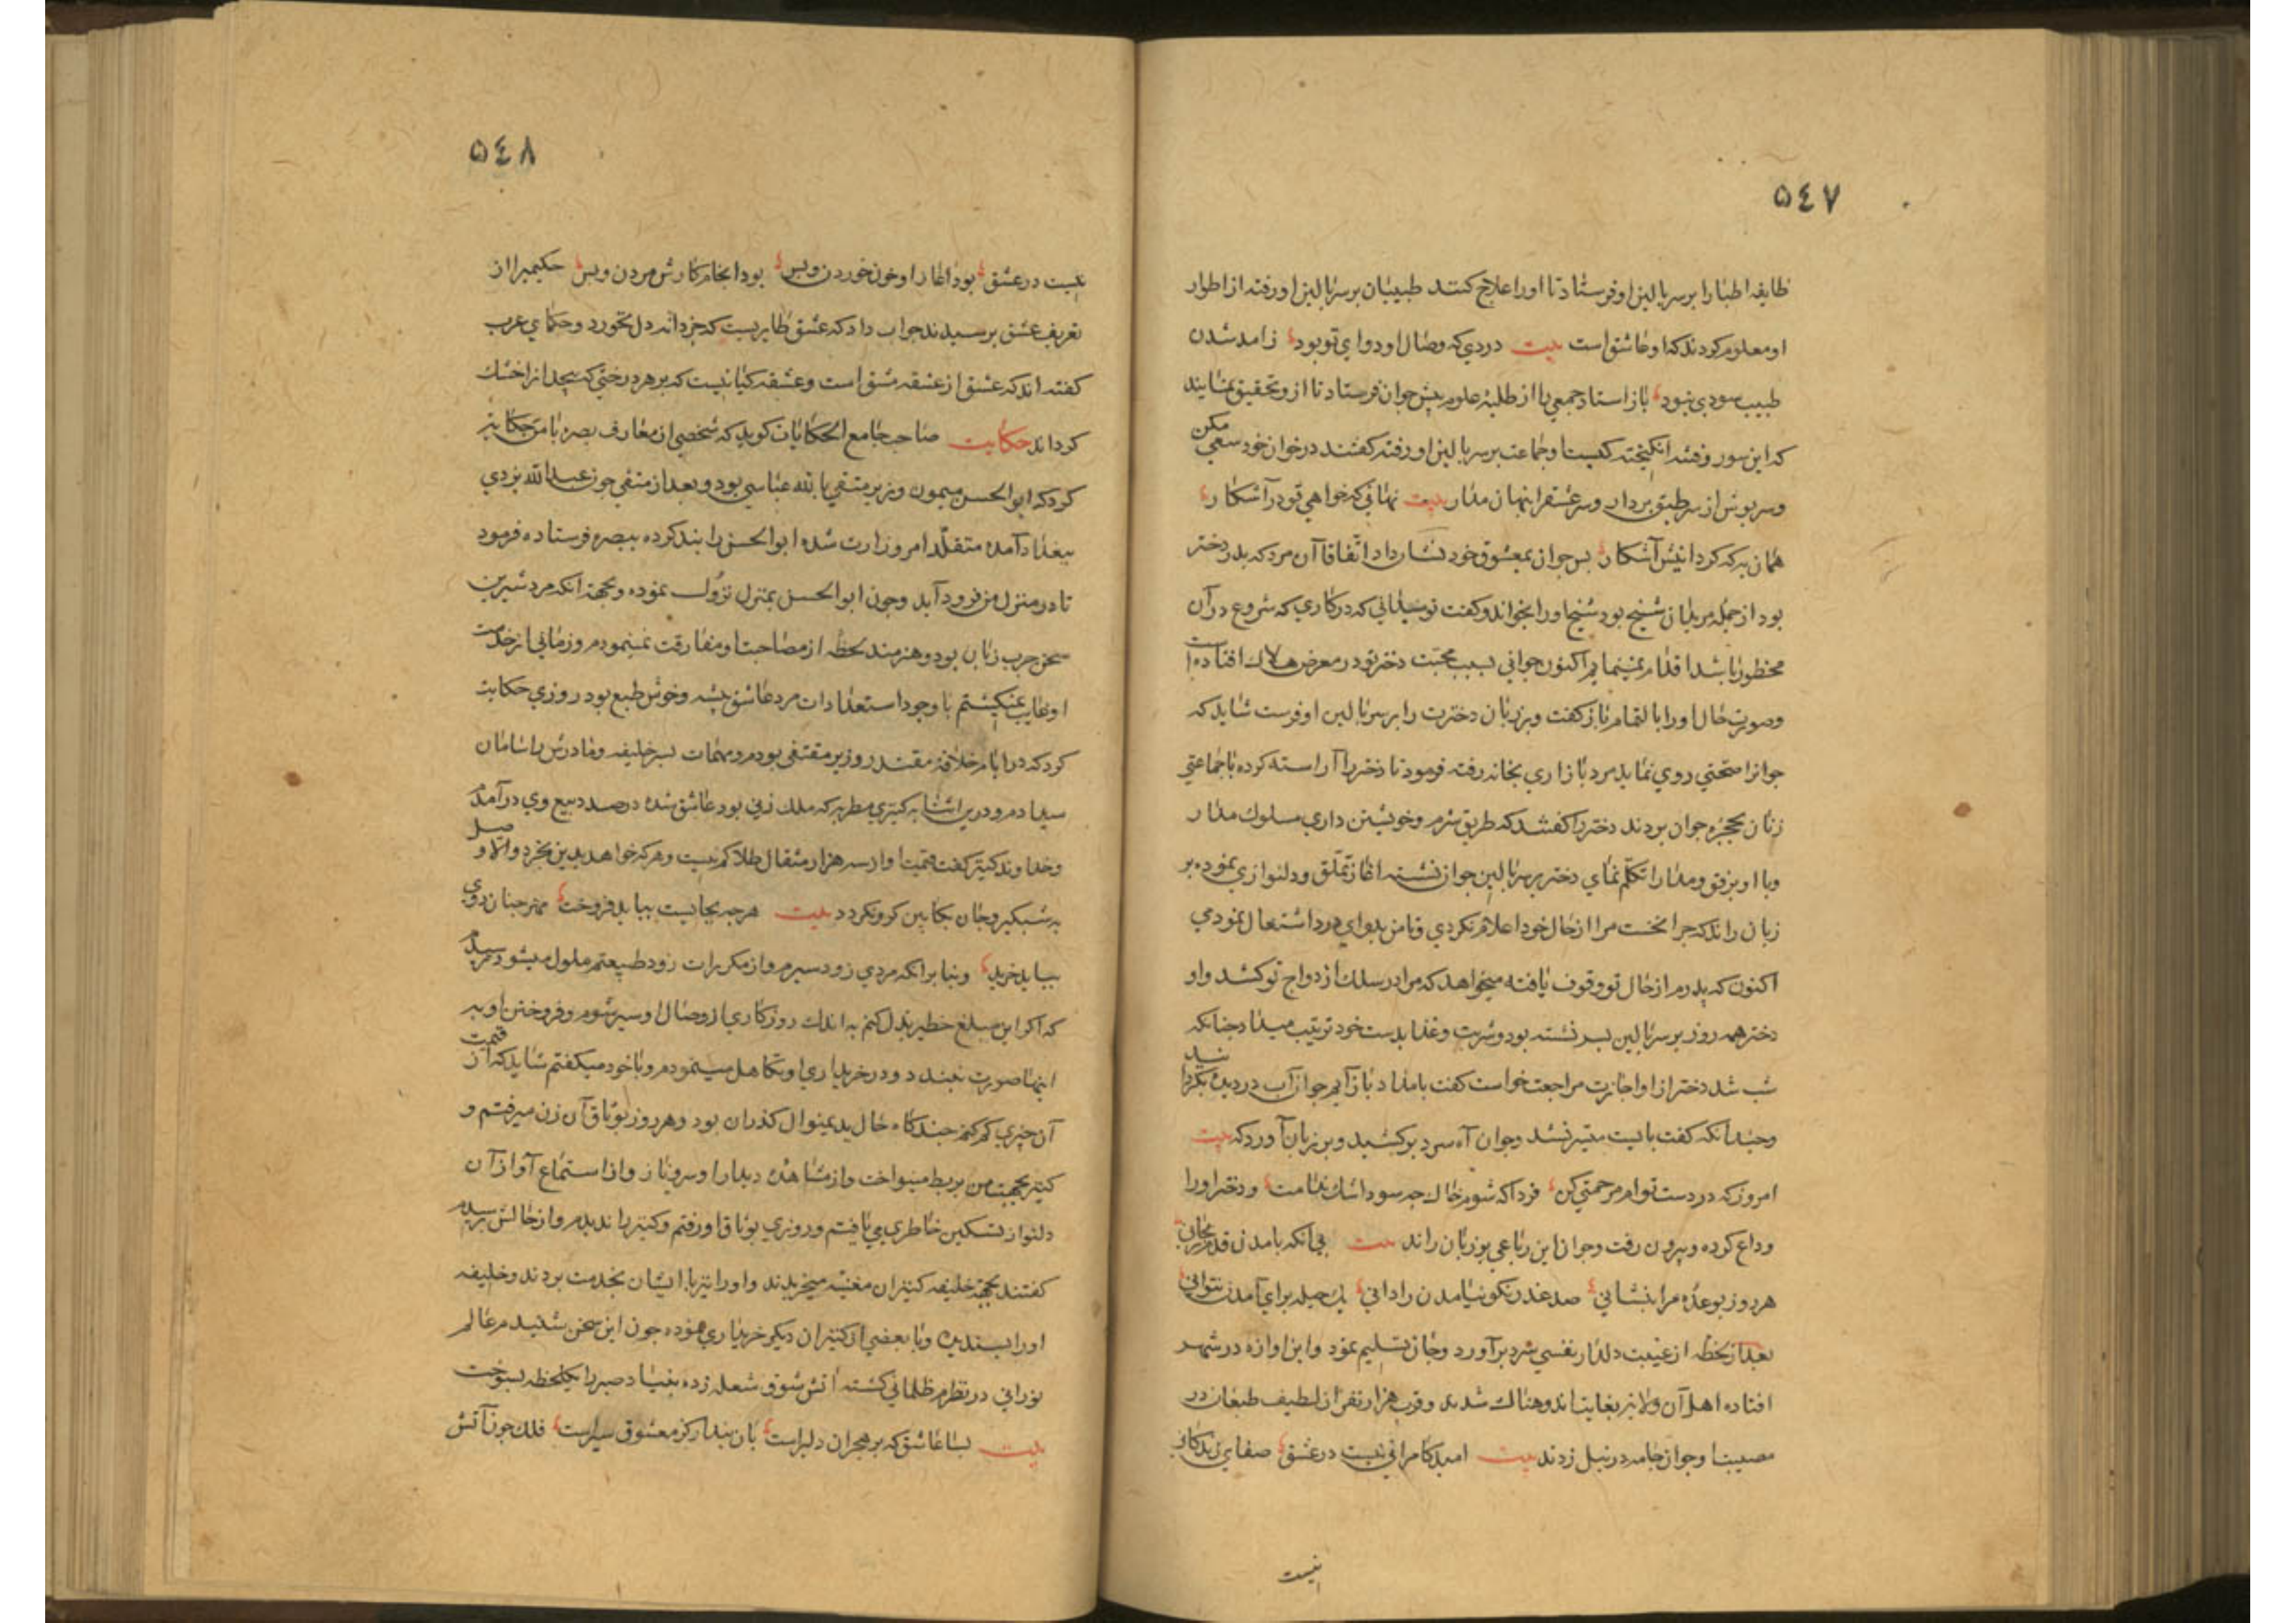 ٥٤٧
طایفه اطبا را بر سر بالین او فرستاد تا او را علاج کنند طبیبان بر سر بالین او رفته از اطوار
او معلوم کردند که او عاشق است بیت دردی که وصال او دوای تو بود زامد شدن
طبیب سودی نبود باز استاد جمعی را از طلبه علوم پیش جوان فرستاد تا ازو تحقیق نمایند
که این سور و فتنه انکیخته کیست او جماعت بر سر بالین او رفته کفتند در خوان خود سعی مکن
و سر پوش از سر طبق بردار و سر عشق را پنهان مدار بیت نهانی که خواهی تو در آشکار
همان به که کردانیش آشکار پس جوان بمعشوق خود نشان داد اتفاقا آن مرد که پدر دختر
بود از جمله مریدان شیخ بود شیخ او را بخواند و کفت تو میدانی که در کاری که شروع در آن
محظور باشد اقدام نمینمایم اکنون جوانی بسبب محبت دختر تو در معرض هلاک افتاده است
و صورت حال او را بالتمام باز کفت و بر زبان دخترت را بر سر بالین او فرست شاید که
جوانرا صحتی روی نماید مرد بازاری بخانه رفته فرمود تا دختر را آراسته کرده با جماعتی
زنان بحجره جوان بردند دختر را کفتند که طریق شرم و خویشتن داری مسلوک مدار
و با او برفق و مدارا تکلم نمای دختر بر سر بالین جوان نشسته اغاز تملق و دلنوازی نموده بر
زبان راند که چرا نخست مرا از حال خود اعلام نکردی تا من بدوای درد اشتغال نمودمی
اکنون که پدرم از حال تو وقوف یافته میخواهد که مرا در سلک ازدواج تو کشد و او
دختر همه روز بر سر بالین پسر نشسته بود و شربت و غذا بدست خود ترتیب میداد چنانکه
شب شد دختر از او اجازت مراجعت خواست کفت بامداد باز آیم جوان آب در دیده بکردانید
و چندانکه کفت بایست میسر نشد و جوان آه سرد برکشید و بر زبان آورد که بیت
امروز که در دست توام مرحمتی کن فردا که شوم خاک چه سود اشک ندامت و دختر او را
وداع کرده و بیرون رفت و جوان این رباعی بر زبان راند بیت بی آنکه بامدن قدم رنجانی
هر روز بوعده مرا بنشانی صد عذر نکو نیامدن را دانی یک حیله برای آمدن نتوانی
بعد از لحظه از غیبت دلدار نفسی سرد برآورد و جان تسلیم نمود و این اوازه در شهر
افتاده اهل آن ولایت بغایت اندوهناک شدند و قرب هزار نفر از لطیف طبعان در
مصیبت او جوان جامه در نیل زدند بیت امید کامرانی نیست در عشق صفای زندکانی
نیست
٥٤٨
نیست در عشق بود اغاز او خون خوردن و بس بود انجام کارش مردن و بس حکیمیرا از
تعریف عشق پرسیدند جواب داد که عشق طایریست که جز دانه دل نخورد و حکمای عرب
کفته اند که عشق از عشقه مشتق است و عشقه کیاهیست که بر هر درختی که پیچد انرا خشک
کرداند حکایت صاحب جامع الحکایات کوید که شخصی از معارف بصره با من حکایت
کرد که ابو الحسن میمون وزیر متقی بالله عباسی بود و بعد از متقی چون عبدالله بزدی
ببغداد آمده متقلد امر وزارت شده ابو الحسن را بند کرده ببصره فرستاده فرمود
تا در منزل من فرود آید و چون ابو الحسن بمنزل نزول نموده و بجهة انکه مرد شیرین
سخن چرب زبان بود و هنرمند لحظه از مصاحبت او مفارقت نمینمودم و زمانی از خدمت
او غایب نمیکشتم با وجود استعدادات مرد عاشق پیشه و خوش طبع بود روزی حکایت
کرد که در ایام خلافت مقتدر وزیر مقتفی بودم و مهمات پسر خلیفه و مادرش را سامان
میدادم و درین اثنا به کنیزی مطربه که ملک زنی بود عاشق شده در صدد بیع وی درآمدم
و خداوند کنیز کفت قیمت او از سه هزار مثقال طلا کم نیست و هر که خواهد بدین بخرد و الا وصل
به شبکیر و جان بکابین کرو نکردد بیت هر چه بجانیست بباید فروخت مهر چنان روی
بباید خرید و بنا بر انکه مردی زود سیرم و از مکررات زود طبیعتم ملول میشود ترسیدم
که اکر این مبلغ خطیر بذل کنم به اندک روزکاری از وصال او سیر شوم و فروختن او به
اینها صورت نبندد و در خریداری او تکاهل مینمودم و با خود میکفتم شاید که از قیمت
آن چیزی کم کنم چندکاه حال بدینمنوال کذران بود و هر روز بوثاق آن زن میرفتم و
کنیز بجهت من بربط مینواخت و از مشاهده دیدار او سرو ناز و از استماع آواز آن
دلنواز تسکین خاطری می یافتم و روزی بوثاق او رفتم و کنیز را ندیدم و از حالش پرسیدم
کفتند بجهة خلیفه کنیزان مغنیه میخریدند و او را نیز با ایشان بخدمت بردند و خلیفه
او را پسندیده و با بعضی از کنیزان دیکر خریداری نموده چون این سخن شنیدم عالم
نورانی در نظرم ظلمانی کشته اتش شوق شعله زده بنیاد صبر را بیکلحظه بسوخت
بیت بسا عاشق که بر هجران دلیر است بان پندار کز معشوق سیر است فلک چون آتش